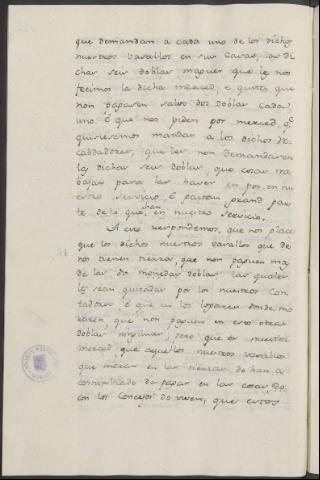 que demandam a cada uno de los dichos
nuestros vasallos en sus casas, las di
chas seis doblas maguer que les nos
fecimos la dicha merced, e quitos que
non pagaren salvo dos doblas cada
uno: E que nos piden por merced, q.e
quisieremos mandar a los dichos Re-
cabdadores, que les non demandaren
las dichas seis doblas, que cosas tra
bajan para las haver en pos en nu
estro servicio, E pasan grand par
te de lo que han en nuestro servicio.
A esto respondemos, que nos place
que los dichos nuestros vasallos que de
nos tienen tierras, que non paguen ma
de las dos monedas doblas las quales
les sean quitadas por los nuestros con
tadores: E que en los logares donde mo
raren, que non paguen en esto otras
doblas ningunas; pero que es nuestra
merced, que aquellos nuestros vasallos
que moran en las tierras do han a
costumbrado de pagar en las cosas, do
con los concejos do viven, que estos